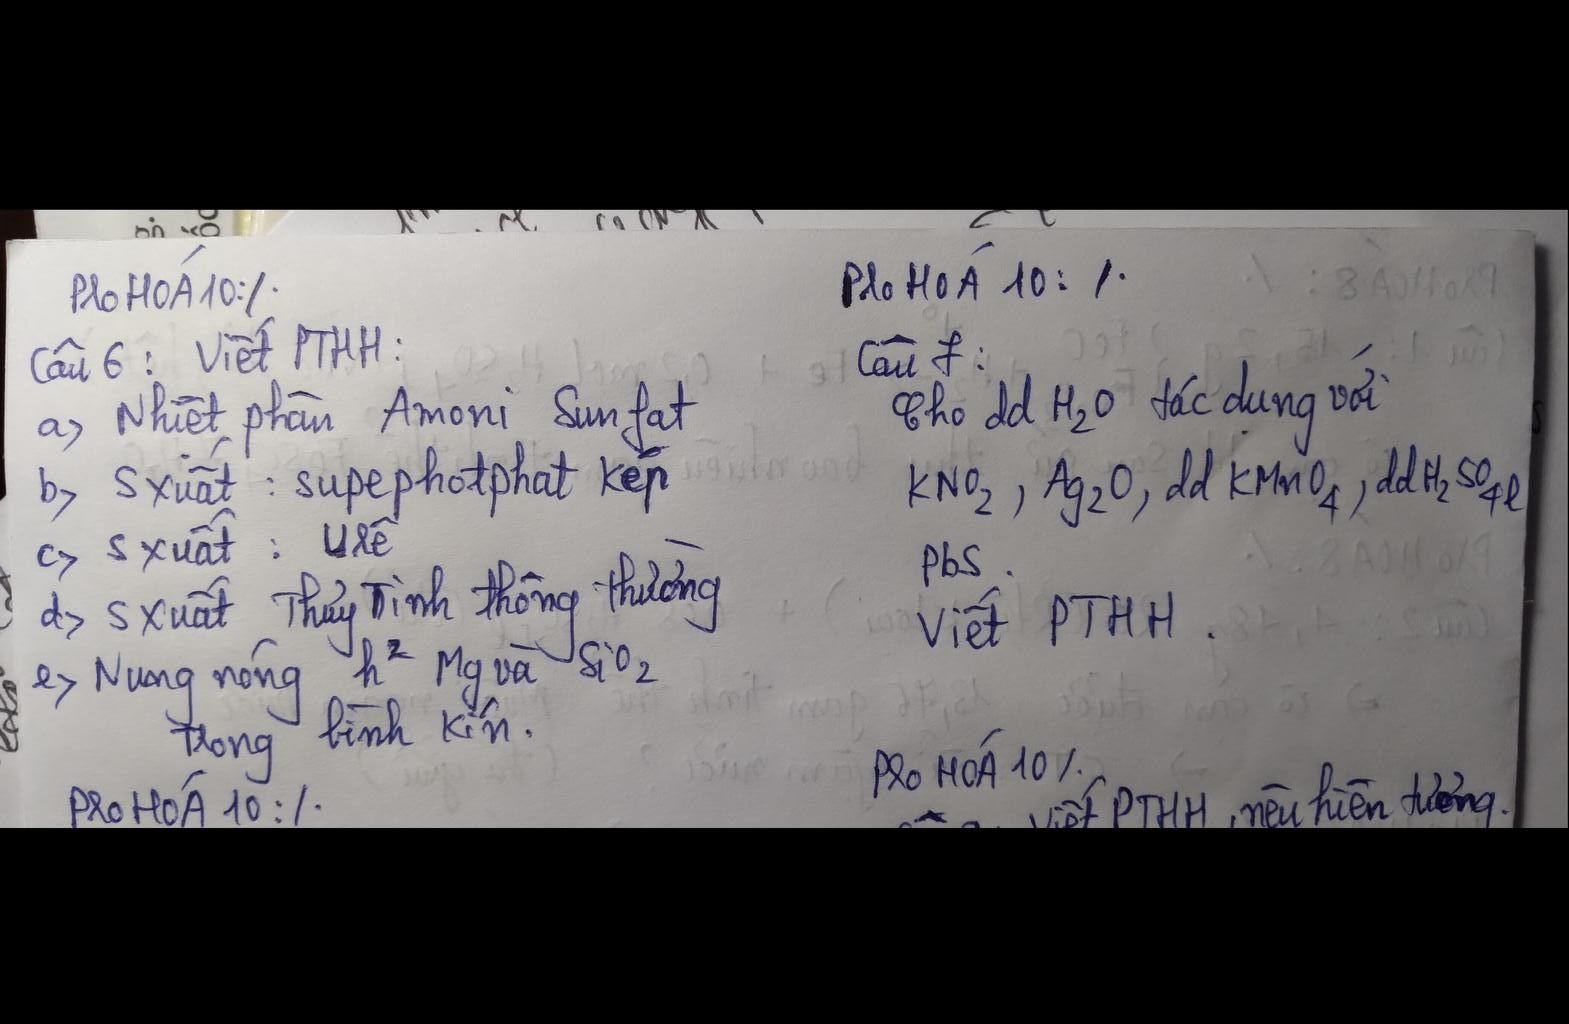 Pro HOÁ 10:/.
Câu 6: Viết PTHH:
a> Nhiệt phân Amoni Sunfat
b> Sxuất: supephotphat kép
c> Sxuất: Urê
d> Sxuất Thủy Tinh thông thường
e> Nung nóng h² Mg và SiO₂
trong bình kín.
Pro HOÁ 10:/.
Pro HOÁ 10: /.
Câu 7:
Cho dd H₂O tác dụng với
KNO₂, Ag₂O, dd KMnO₄, dd H₂SO₄l
PbS.
Viết PTHH.
Pro HOÁ 10/.
Viết PTHH, nêu hiện tượng.